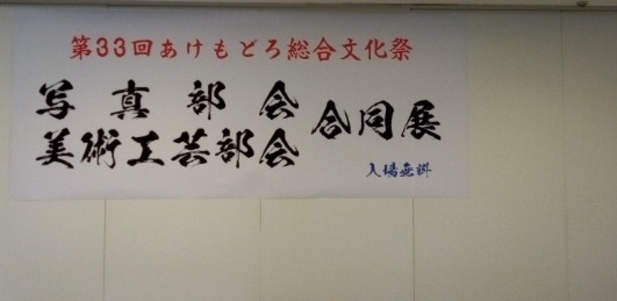 第33回あけもどろ総合文化祭
写真部会
美術工芸部会
合同展
入場無料